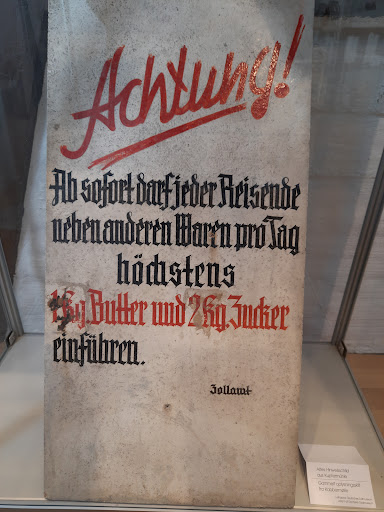 Achtung!
Ab sofort darf jeder Reisende
neben anderen Waren pro Tag
höchstens
1 Kg. Butter und 2 Kg. Zucker
einführen.
Zollamt